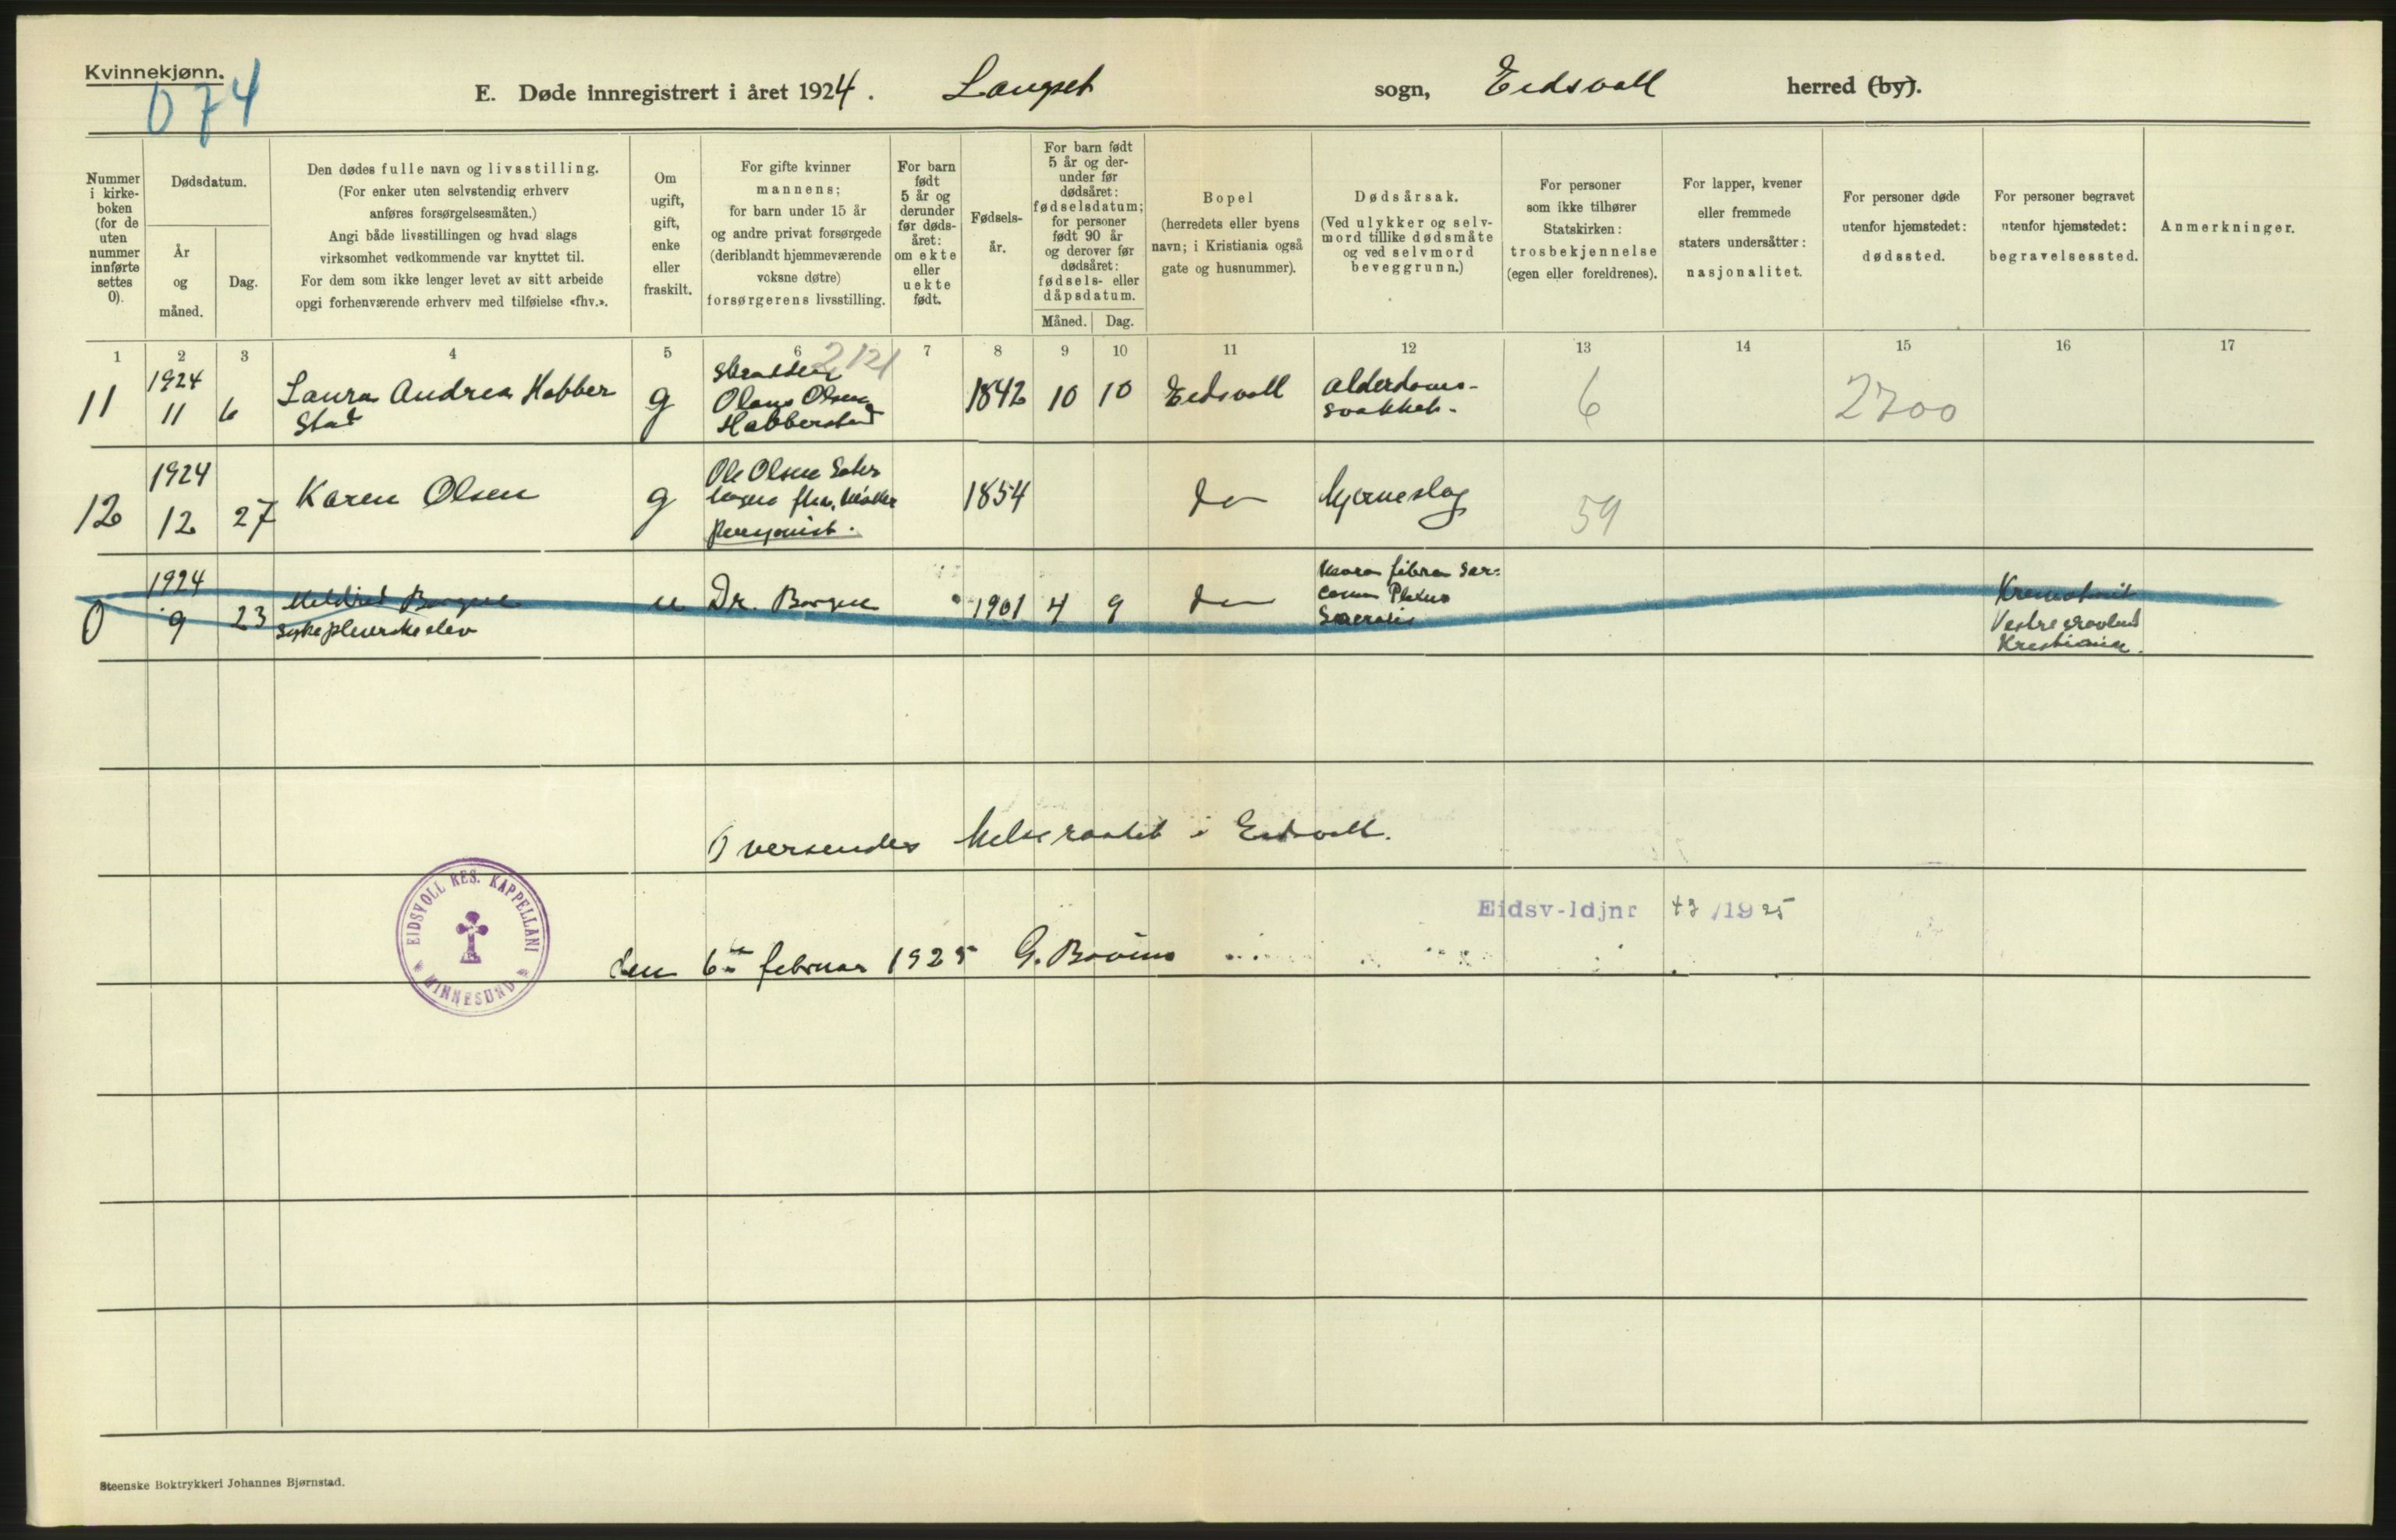 Kvinnekjønn.
074
E. Døde innregistrert i året 1924. Langset sogn, Eidsvoll herred (by).
Nummer
i kirke-
boken
(for de
uten
nummer
innførte
settes
0).
Dødsdatum.
År
og
måned.
Dag.
Den dødes fulle navn og livsstilling.
(For enker uten selvstendig erhverv
anføres forsørgelsesmåten.)
Angi både livsstillingen og hvad slags
virksomhet vedkommende var knyttet til.
For dem som ikke lenger levet av sitt arbeide
opgi forhenværende erhverv med tilføielse «fhv.».
Om
ugift,
gift,
enke
eller
fraskilt.
For gifte kvinner
mannens;
for barn under 15 år
og andre privat forsørgede
(deriblandt hjemmeværende
voksne døtre)
forsørgerens livsstilling.
For barn
født
5 år og
derunder
før døds-
året:
om ekte
eller
uekte
født.
Fødsels-
år.
For barn født
5 år og der-
under før
dødsåret:
fødselsdatum;
for personer
født 90 år
og derover før
dødsåret:
fødsels- eller
dåpsdatum.
Måned. Dag.
Bopel
(herredets eller byens
navn; i Kristiania også
gate og husnummer).
Dødsårsak.
(Ved ulykker og selv-
mord tillike dødsmåte
og ved selvmord
beveggrunn.)
For personer
som ikke tilhører
Statskirken:
trosbekjennelse
(egen eller foreldrenes).
For lapper, kvener
eller fremmede
staters undersåtter:
nasjonalitet.
For personer døde
utenfor hjemstedet:
dødssted.
For personer begravet
utenfor hjemstedet:
begravelsessted.
Anmerkninger.
1 2 3 4 5 6 7 8 9 10 11 12 13 14 15 16 17
2121
11
1924
11 6
Laura Andrea Habber
stad
g
Skredder
Olaus Olsen
Habberstad
1842 10 10 Eidsvoll
Alderdoms-
svakkeh.
6 2700
12
1924
12 27
Karen Olsen
g
Ole Olsen
fhv.
1854 do Hjerneslag 59
0
1924
9 23
Borgen
sykepleierskeelev
u Dr. Borgen 1901 4 9 do
fibro Sar-
com Plexus
Sacralis
Krematoriet
Vestre gravlund
Kristiania.
Oversendes Helseraadet i Eidsvoll.
EIDSVOLL RES. KAPPELLANI
MINNESUND
Eidsv-ldjnr 43/1925
den 6te februar 1925 G. Bovim
Steenske Boktrykkeri Johannes Bjørnstad.